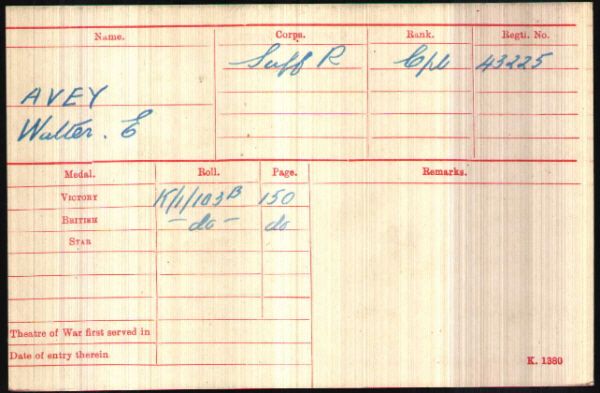 Name. Corps. Rank. Regtl. No.
Suff R Cpl 43225
AVEY
Walter. E
Medal. Roll. Page. Remarks.
VICTORY K/1/103B 150
BRITISH - do - do
STAR
Theatre of War first served in
Date of entry therein
K. 1380